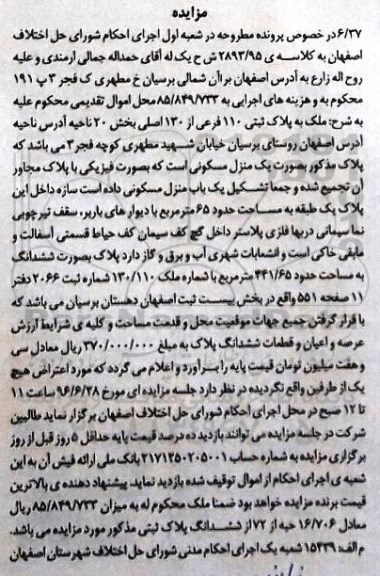 مزایده
۶/۳۷ در خصوص پرونده مطروحه در شعبه اول اجرای احکام شورای حل اختلاف
اصفهان به کلاسه ی ۲۸۹۳/۹۵ ش ح یک له آقای حمداله جمالی ارمندی و علیه
روح اله زارع به آدرس اصفهان براآن شمالی برسیان خ مطهری ک فجر ۳ پ ۱۹۱
محکوم به و هزینه های اجرایی به ۸۵/۸۴۹/۷۳۳ محل اموال تقدیمی محکوم علیه
به شرح: ملک به پلاک ثبتی ۱۱۰ فرعی از ۱۳۰ اصلی بخش ۲۰ ناحیه آدرس ناحیه
آدرس اصفهان روستای برسیان خیابان شهید مطهری کوچه فجر ۳ می باشد که
پلاک مذکور بصورت یک منزل مسکونی است که بصورت فیزیکی با پلاک مجاور
آن تجمیع شده و جمعا تشکیل یک باب منزل مسکونی داده است سازه داخل این
پلاک یک طبقه به مساحت حدود ۶۵ مترمربع با دیوار های باربر، سقف تیرچوبی
نما سیمانی دربها فلزی پلاستر داخل گچ کف سیمان کف حیاط قسمتی آسفالت و
مابقی خاکی است و انشعابات شهری آب و برق و گاز دارد پلاک بصورت ششدانگ
به مساحت حدود ۴۴۱/۶۵ مترمربع با شماره ملک ۱۳۰/۱۱۰ شماره ثبت ۲۰۶۶ دفتر
۱۱ صفحه ۵۵۱ واقع در بخش بیست ثبت اصفهان دهستان برسیان می باشد که
با قرار گرفتن جمیع جهات موقعیت محل و قدمت مساحت و کلیه ی شرایط ارزش
عرصه و اعیان و قطعات ششدانگ پلاک به مبلغ ۳۷۰/۰۰۰/۰۰۰ ریال معادل سی
و هفت میلیون تومان قیمت پایه را برآورد و اعلام می گردد که مورد اعتراض هیچ
یک از طرفین واقع نگردیده در نظر دارد جلسه مزایده ای مورخ ۹۶/۶/۲۸ ساعت ۱۱
تا ۱۲ صبح در محل اجرای احکام شورای حل اختلاف اصفهان برگزار نماید طالبین
شرکت در جلسه مزایده می توانند بازدید ده درصد قیمت پایه حداقل ۵ روز قبل از روز
برگزاری مزایده به شماره حساب ۲۱۷۱۲۵۰۲۰۵۰۰۱ بانک ملی ارائه فیش آن به این
شعبه ی اجرای احکام از اموال توقیف شده بازدید نماید. پیشنهاد دهنده ی بالاترین
قیمت برنده مزایده خواهد بود ضمنا ملک محکوم له به میزان ۸۵/۸۴۹/۷۳۳ ریال
معادل ۱۶/۷۰۶ حبه از ۷۲ از ششدانگ پلاک ثبتی مذکور مورد مزایده می باشد.
م الف: ۱۵۴۳۹ شعبه یک اجرای احکام مدنی شورای حل اختلاف شهرستان اصفهان